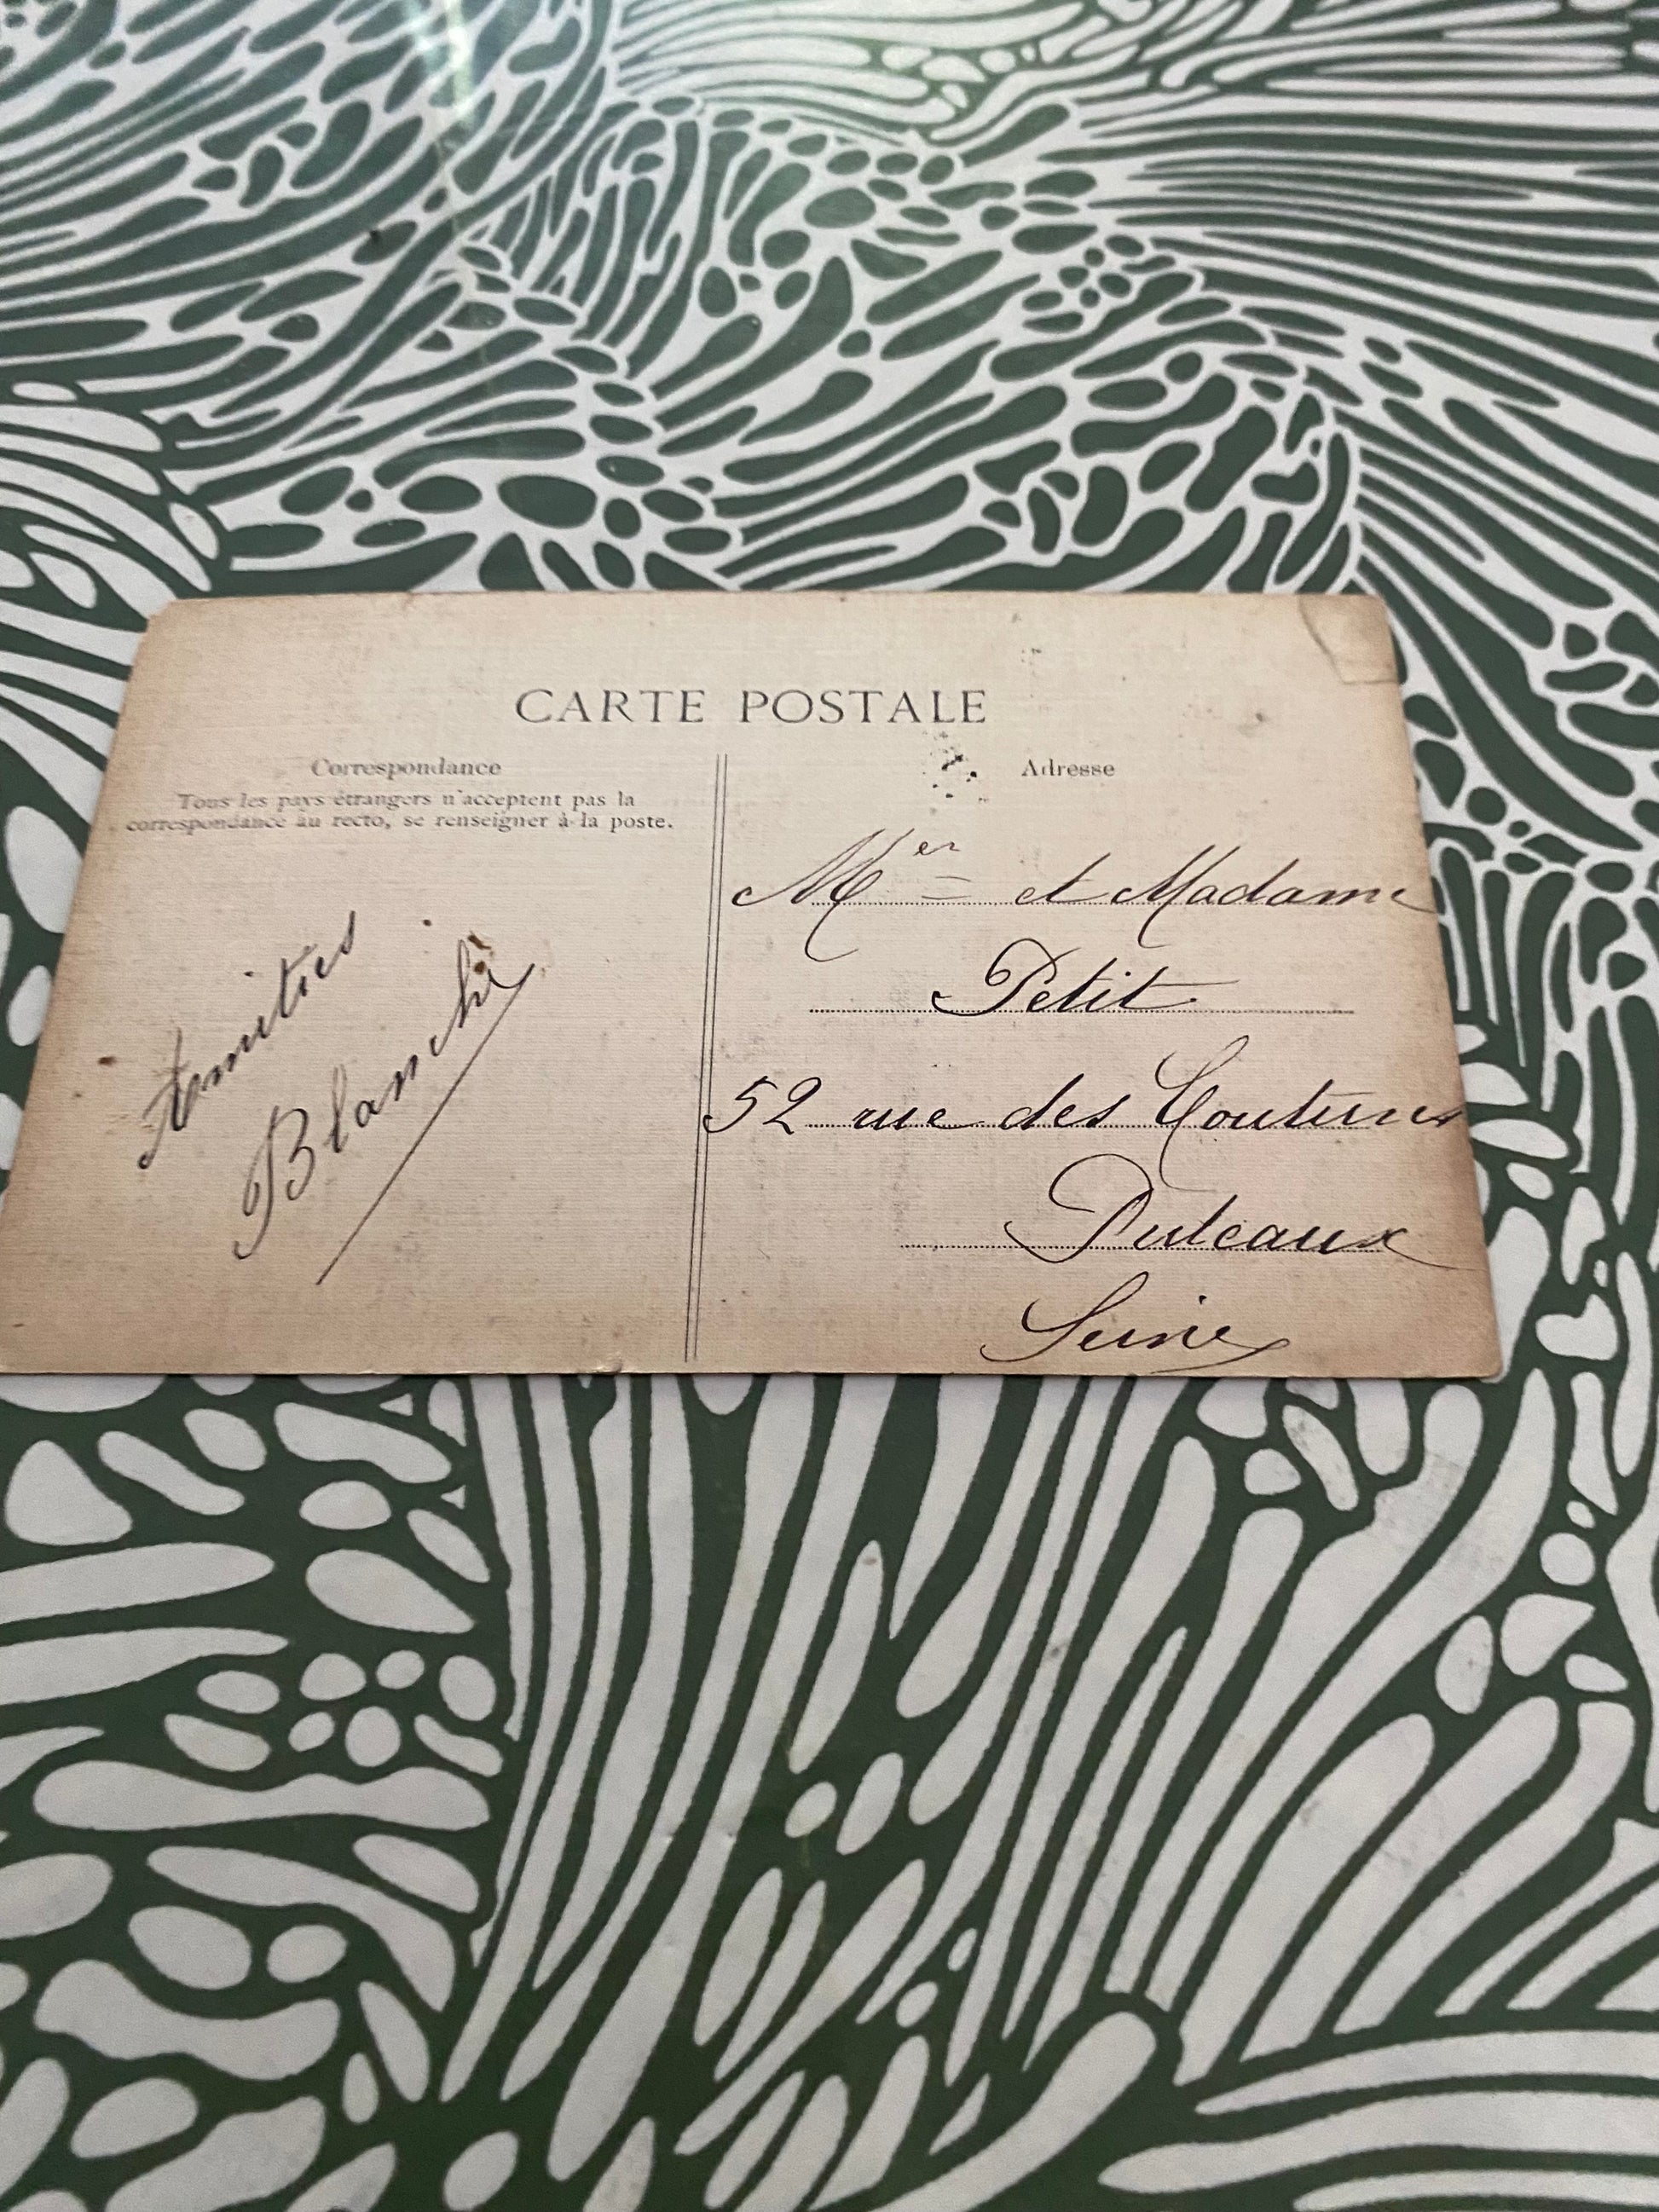 CARTE POSTALE
Correspondance
Tous les pays étrangers n'acceptent pas la
correspondance au recto, se renseigner à la poste.
Amitiés
Blanche
Adresse
Mer et Madame
Petit
52 rue des Coutures
Puteaux
Seine